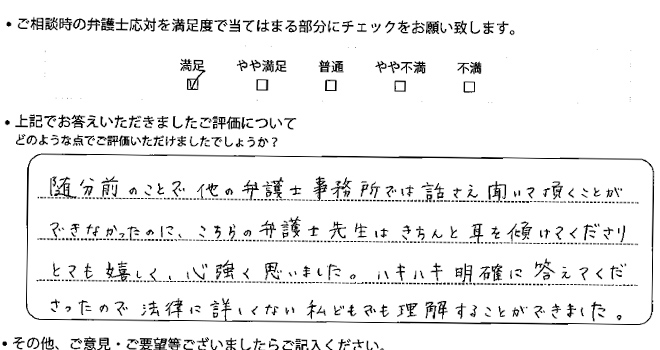 ・ご相談時の弁護士応対を満足度で当てはまる部分にチェックをお願い致します。
満足 やや満足 普通 やや不満 不満
☑ □ □ □ □
・上記でお答えいただきましたご評価について
どのような点でご評価いただけましたでしょうか？
随分前のことで他の弁護士事務所では話さえ聞いて頂くことが
できなかったのに、こちらの弁護士先生はきちんと耳を傾けてくださり
とても嬉しく、心強く思いました。ハキハキ明確に答えてくだ
さったので法律に詳しくない私どもでも理解することができました。
・その他、ご意見・ご要望等ございましたらご記入ください。